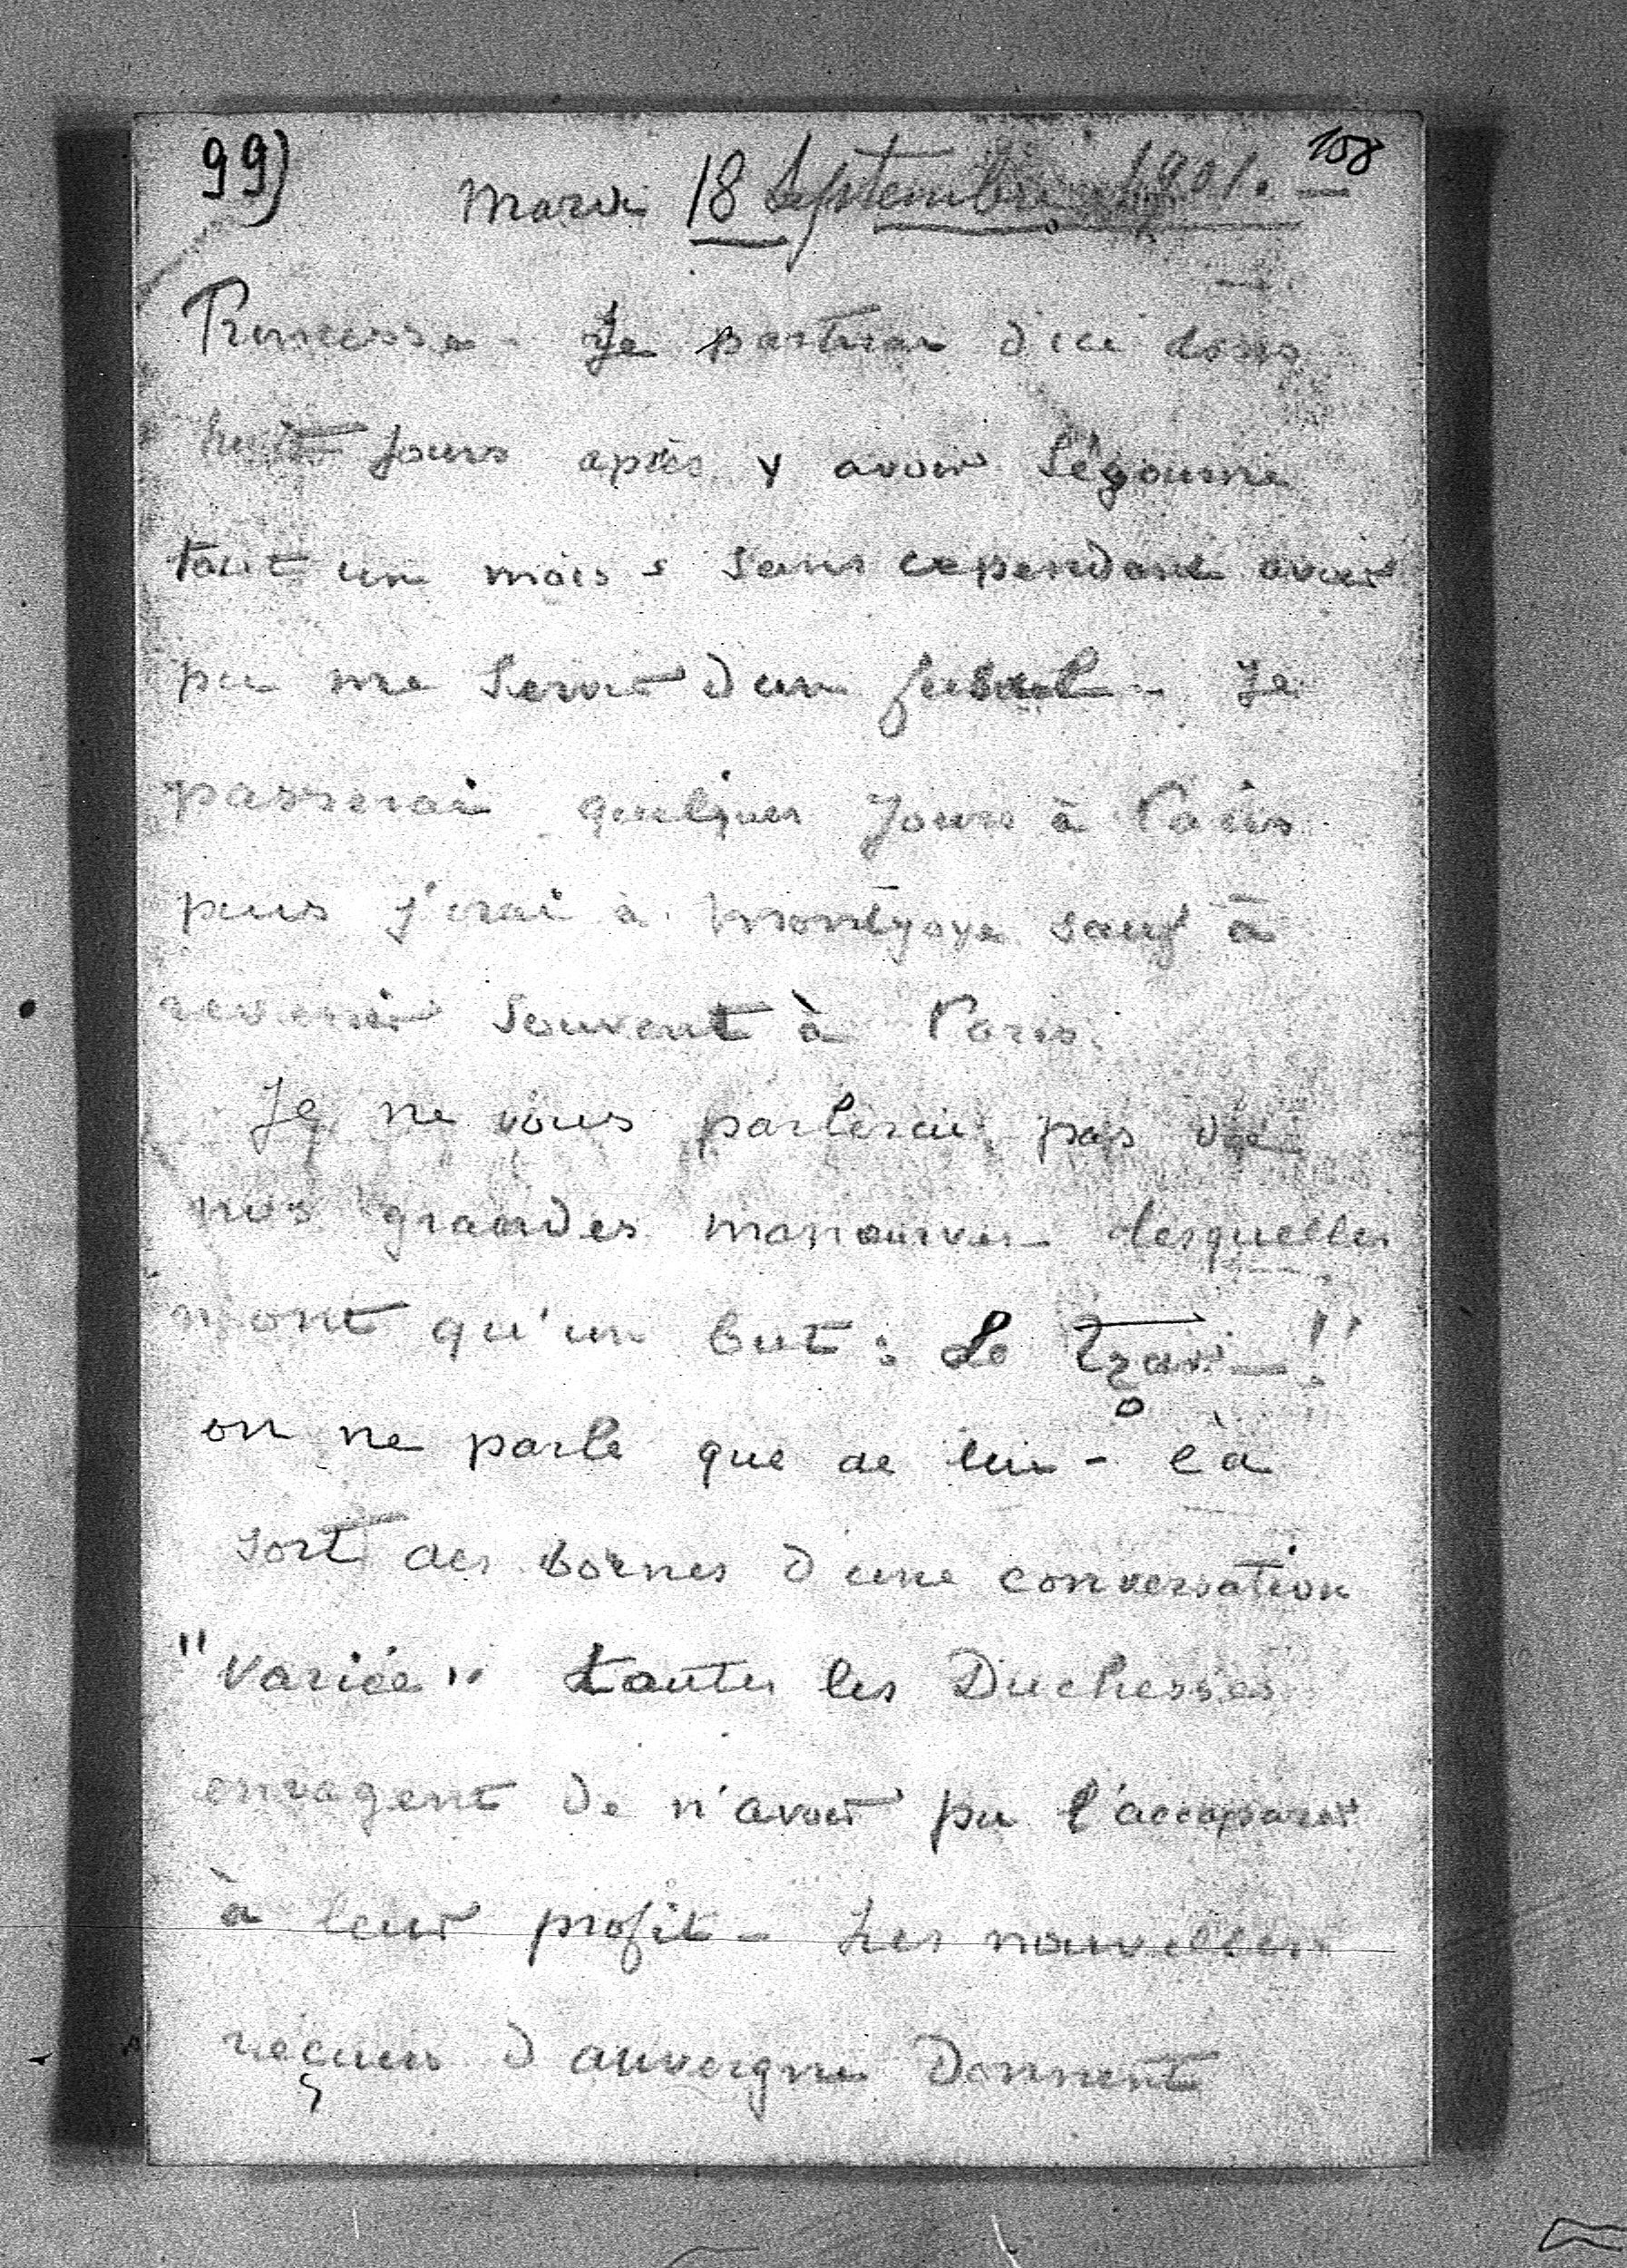 99)
108
Mardi 18 Septembre 1901. —
Princesse - Je partirai d'ici dans
huit jours après y avoir séjourné
tout un mois, sans cependant avoir
pu me servir d'un fusil - Je
passerai quelques jours à Paris
puis j'irai à Montjoye sauf à
revenir souvent à Paris.
Je ne vous parlerai pas de
nos grandes manœuvres lesquelles
n'ont qu'un but : Le Tzar - !!
on ne parle que de lui - cà
sort des bornes d'une conversation
"variée" toutes les Duchesses
enragent de n'avoir pu l'accaparer
à leur profit - Les nouvelles
reçues d'auvergne Donnent